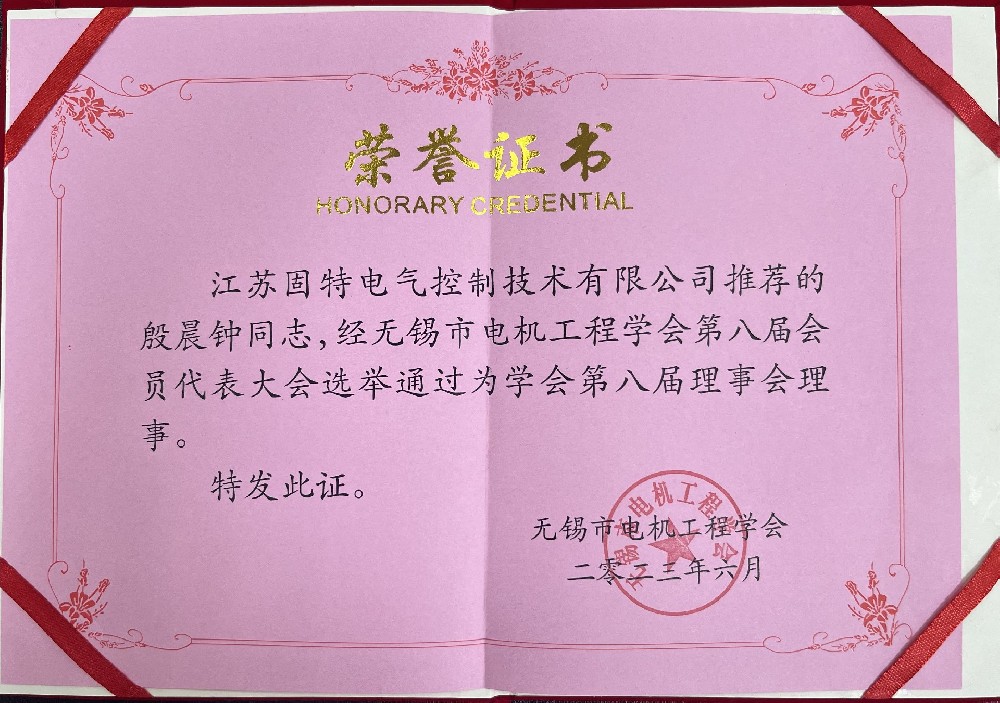 荣誉证书
HONORARY CREDENTIAL
江苏固特电气控制技术有限公司推荐的
殷晨钟同志,经无锡市电机工程学会第八届会
员代表大会选举通过为学会第八届理事会理
事。
特发此证。
无锡市电机工程学会
二零二三年六月
无锡市电机工程学会